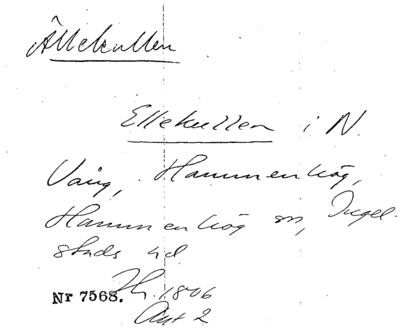 Ällekullen
Ellekullen i N.
Vång, Hammenhög,
Hammenhög sn, Ingel-
stads hd
Nr 7568. H. 1806
Akt 2